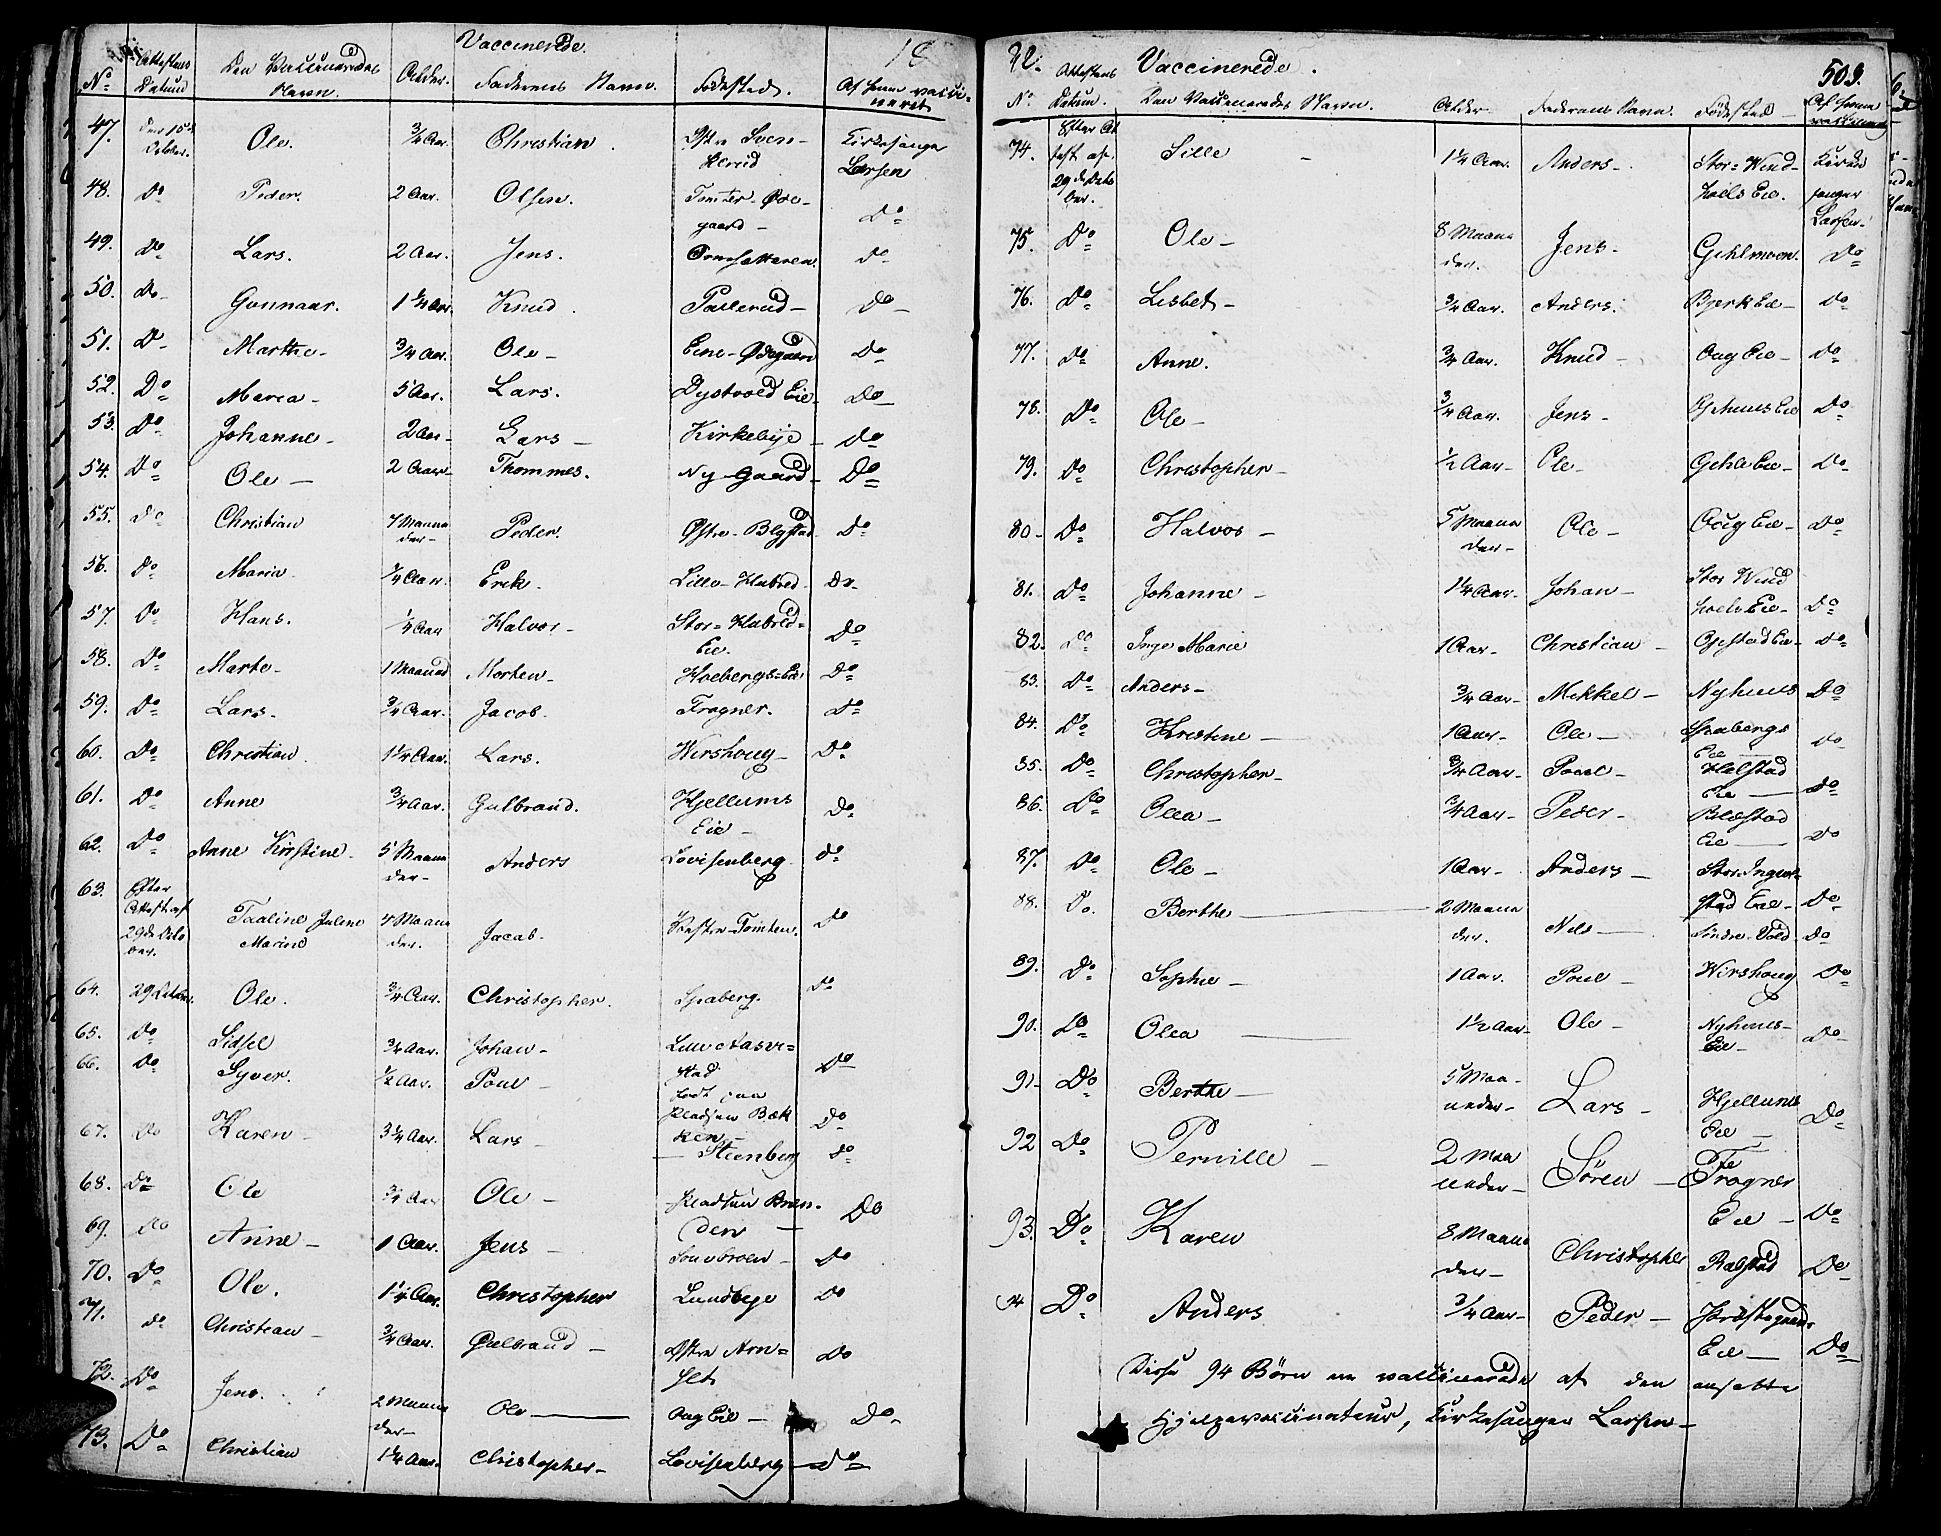 Vaccinerede. 18
No Attestens Datum Den Vaccineredes Navn. Alder. Faderens Navn. Fødested. Af hvem vaccineret
47. Den 15de October. Ole. 3/4 Aar. Christian. Østre Kirkesanger Larsen
48. Do Peder. 2 Aar. Olsen. Tomter Ødegaard Do
49. Do Lars. 2 Aar. Jens. do
50. Do Gunnar. 1 1/4 Aar. Knud. Do
51. Do Marthe 3/4 Aar. Ole Eine-Ødegaard Do
52. Do Maria 5 Aar. Lars. Dystvold Eie Do
53. Do Johanne 2 Aar Lars Kirkebye Do
54. Do Ole 2 Aar Thommes. Ny-Gaard Do
55. Do Christian 7 Maaneder Peder. Østre-Blystad Do
56. Do Maria Aar. Erik. Lille-Hubred Do
57. Do Hans. 1/4 Aar Halvor Stor-Hubred-Eie. Do
58. Do Marte 1 Maaned Morten Hoebergs-Eie Do
59. Do Lars. 3/4 Aar. Jacob. Frogner. Do
60. Do Christian 1 1/4 Aar. Lars. Wirshoug Do
61. Do Anne 3/4 Aar. Gulbrand. Hjellums Eie Do
62. Do Anne Kirstine 5 Maaneder Anders Lovisenberg do
63. Efter Attest af 29de October. Juline Marine 4 Maaneder. Jacob. Tomten. Do
64. 29 October. Ole. 3/4 Aar. Christopher. Spaberg. Do
65. Do Sidsel 3/4 Aar. Johan Lille
66. Do Syver. 1/2 Aar. Poul Do
67. Do Karen 3 1/4 Aar. Lars Steenberg Do
68. Do Ole 3/4 Aar Ole Pladsen Do
69. Do Anne 1 Aar. Jens Do
70. Do Ole. 1 1/4 Aar. Christopher Lundbye Do
71. do Christian 3/4 Aar. Gulbrand Østre Arnset Do
72. Do Jens. 2 Maaneder Ole Oug Eie Do
73. Do Christian 1 1/4 Aar. Christopher Lovisenberg Do
Vaccinerede. 503.
No Attestens Datum. Den Vaccineredes Navn. Alder. Faderens Navn. Fødested Af hvem vaccineret
74. Efter Attest af 29de October. Sille 1 1/4 Aar. Anders Stor-Windhoels Eie. Kirkesanger Larsen.
75. Do Ole 8 Maaneder. Jens Gihlmoen. Do
76. Do Lisbet 3/4 Aar. Anders. Bjerk Eie Do
77. Do Anne. 3/4 Aar. Knud Oug Eie Do
78. Do Ole 3/4 Aar. Jens Eie Do
79. Do Christopher 1/2 Aar Ole Gihle Eie Do
80 Do Halvor 5 Maaneder Ole Oug Eie Do
81. Do Johanne 1 1/4 Aar Johan Stor Windhoels Eie Do
82. Do Inge Marie 1 Aar Christian Opstad Eie Do
83. Do Anders 3/4 Aar Mikkel Nyhuus Do
84. Do Kristine 1 Aar Ole Spabergs Eie Do
85. Do Christopher 3/4 Aar Poul Halstad Eie Do
86. Do Olea 3/4 Aar Peder Blæstad Eie Do
87. Do Ole 1 Aar Anders Stor Ingvalstad Eie Do
88. Do. Berthe 2 Maaneder. Nels Søndre Vold Do
89. Do Sophie 1 Aar. Poul Wirshoug Do
90. Do Olea 1 1/2 Aar Ole Nyhuus Eie Do
91 Do Berthe 5 Maaneder Lars Hjellums Eie Do
92 Do Pernille 2 Maaneder Søren Frogner Eie Do
93. Do Karen 8 Maaneder Christopher Ralstad Do
94 Do Anders 3/4 Aar Peder Eie Do
Disse 94 Børn ere vaccinerede af den ansatte
Hjelpevaccinateur, Kirkesanger Larsen